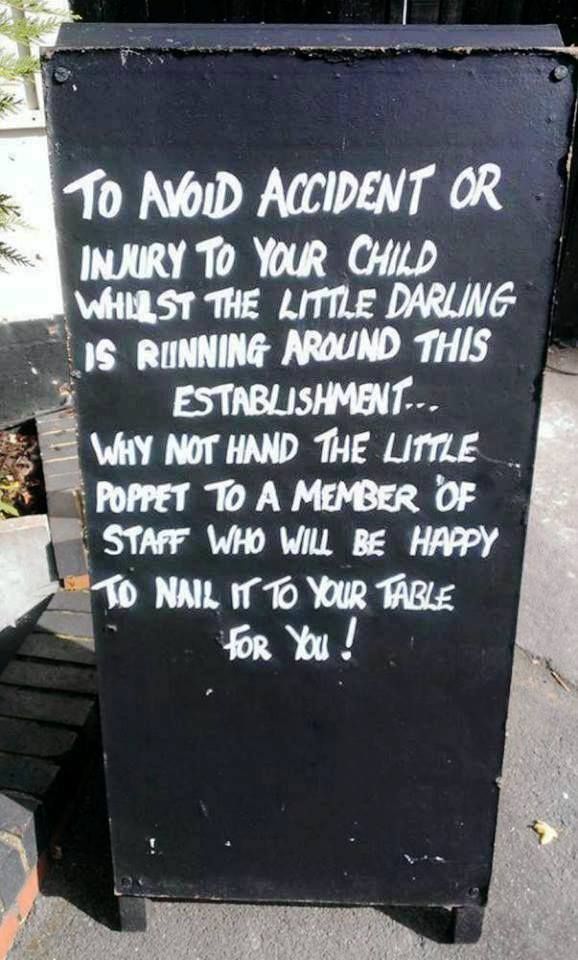 TO AVOID ACCIDENT OR
INJURY TO YOUR CHILD
WHILST THE LITTLE DARLING
IS RUNNING AROUND THIS
ESTABLISHMENT...
WHY NOT HAND THE LITTLE
POPPET TO A MEMBER OF
STAFF WHO WILL BE HAPPY
TO NAIL IT TO YOUR TABLE
FOR YOU!